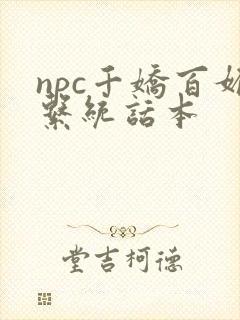 npc千嬌百媚
繫統話本
堂吉柯德